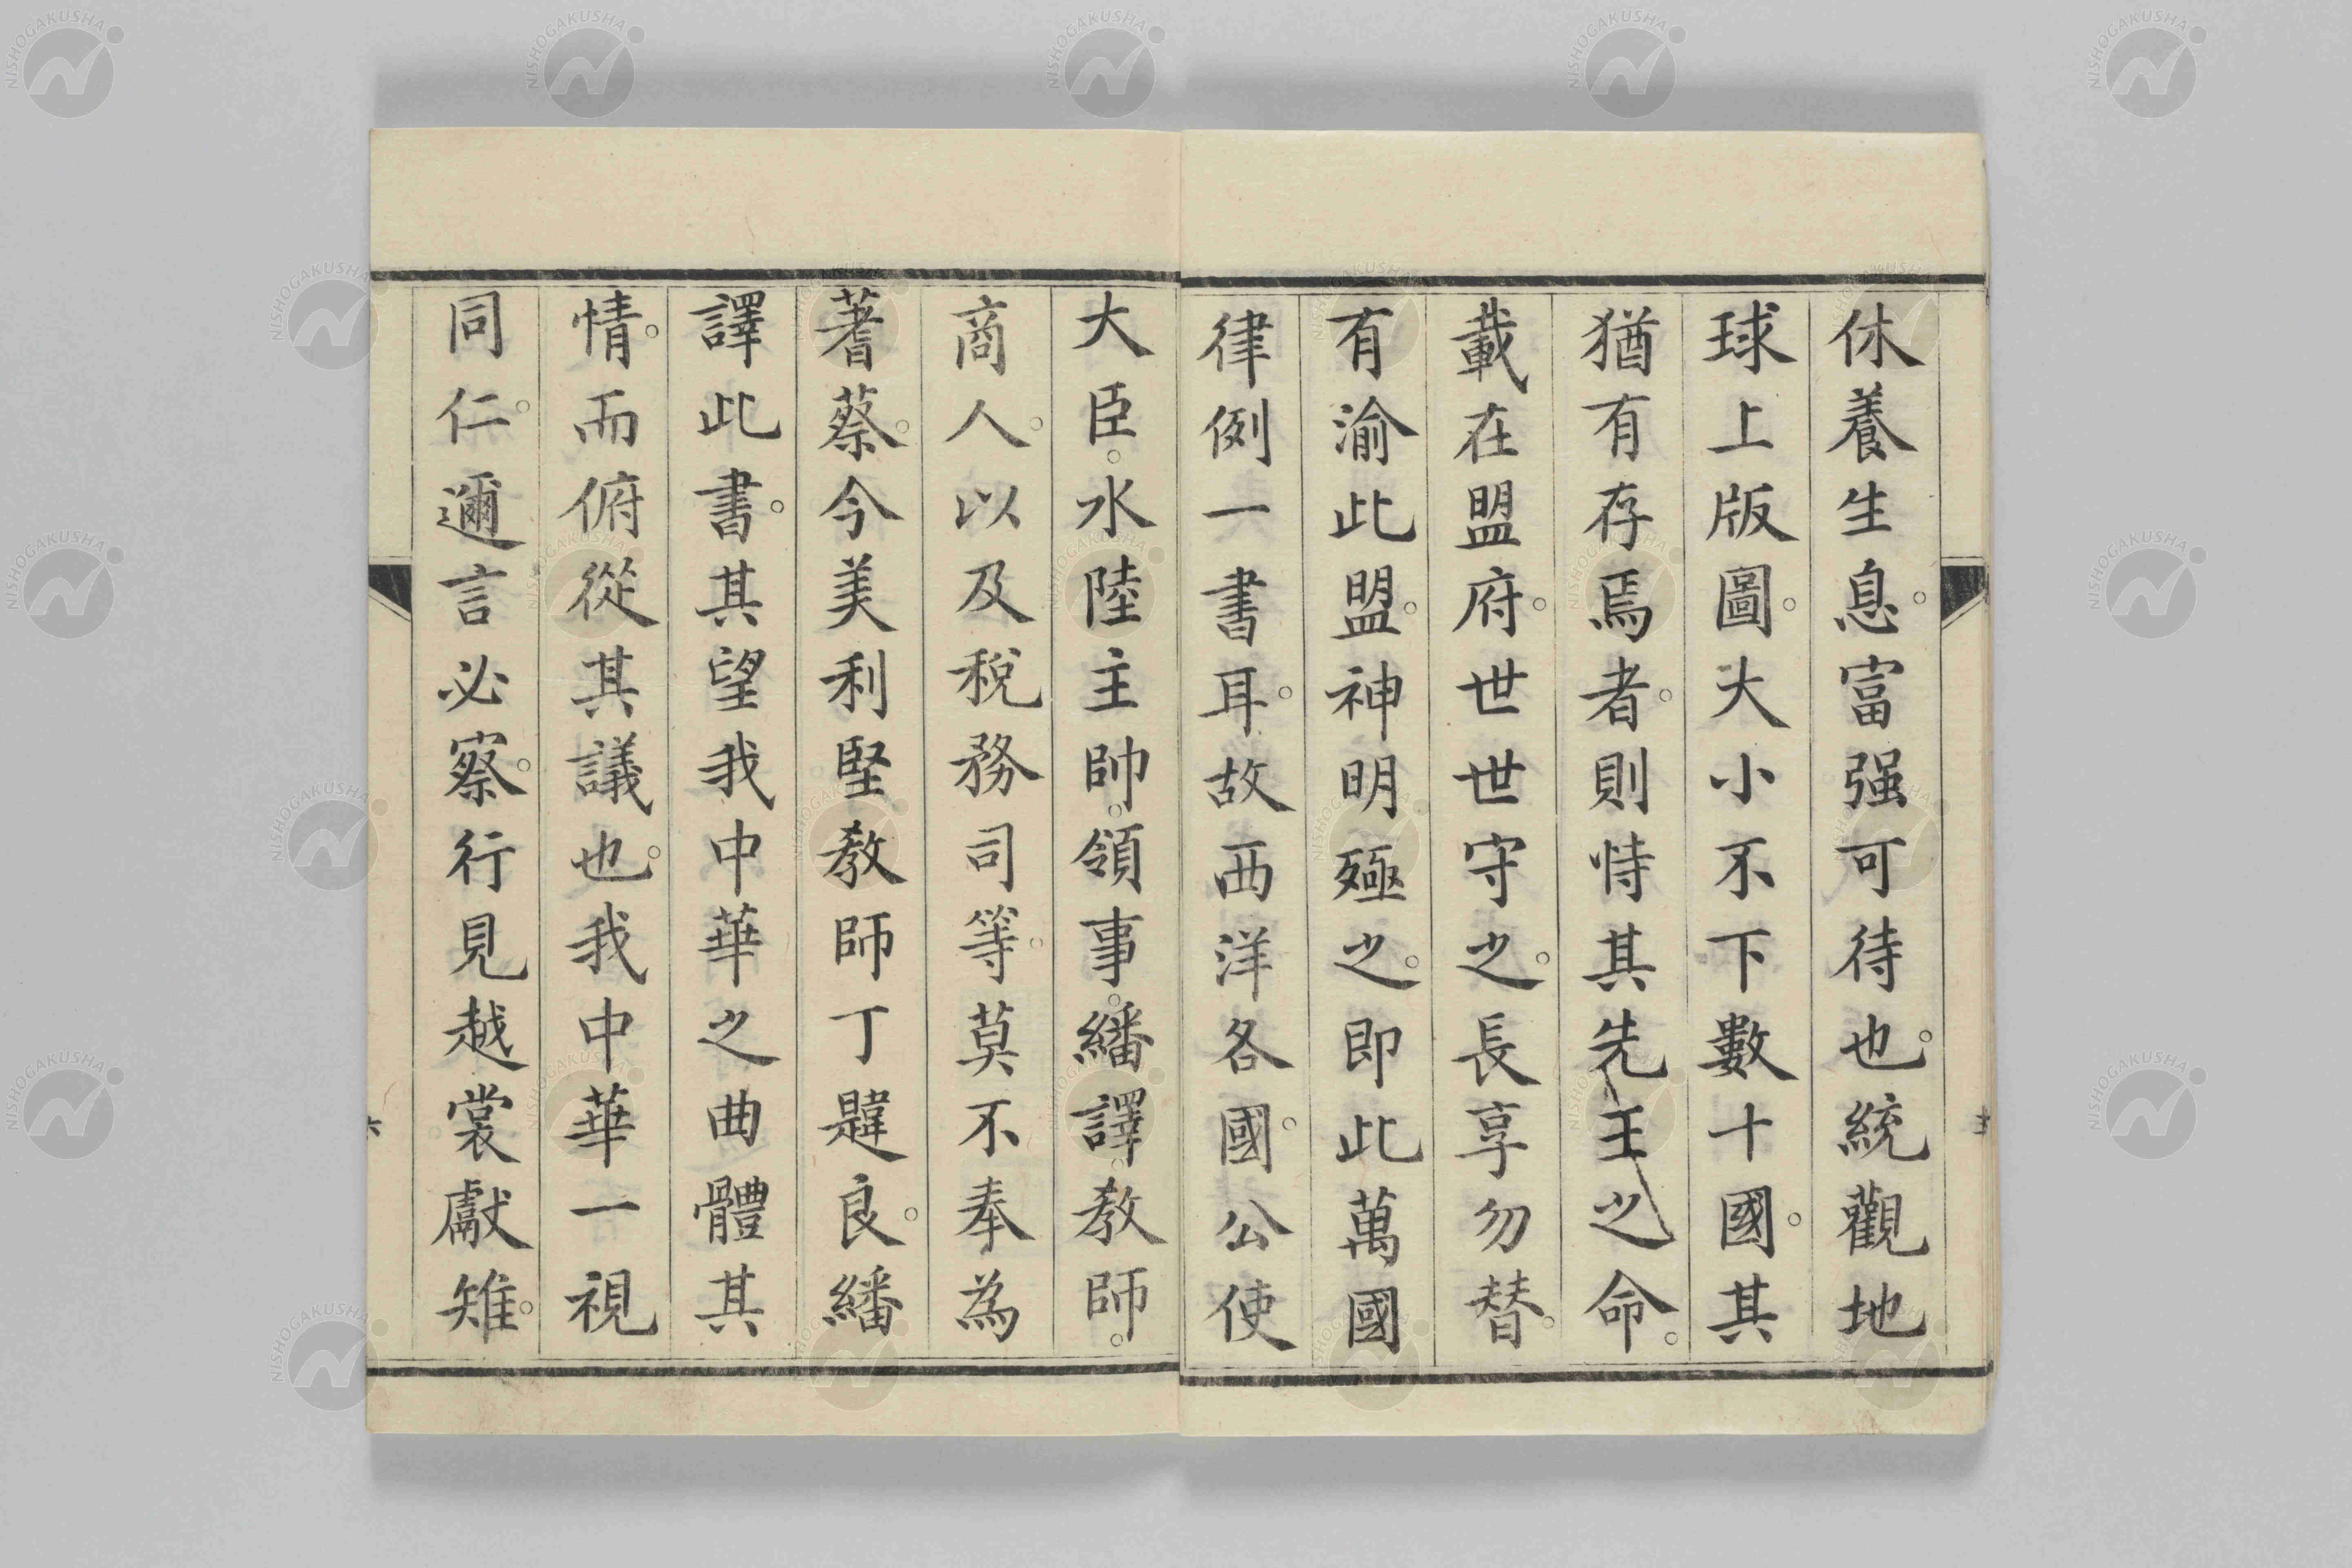 休養生息。富强可待也。統觀地
球上版圖。大小不下數十國。其
猶有存焉者。則恃其先王之命。
載在盟府。世世守之。長享勿替。
有渝此盟。神明殛之。即此萬國
律例一書耳。故西洋各國。公使
大臣。水陸主帥。領事。繙譯。教師。
商人。以及稅務司等。莫不奉為
蓍蔡。今美利堅教師丁韙良。繙
譯此書。其望我中華之曲體其
情。而俯從其議也。我中華一視
同仁。邇言必察。行見越裳獻雉。
六
NISHOGAKUSHA